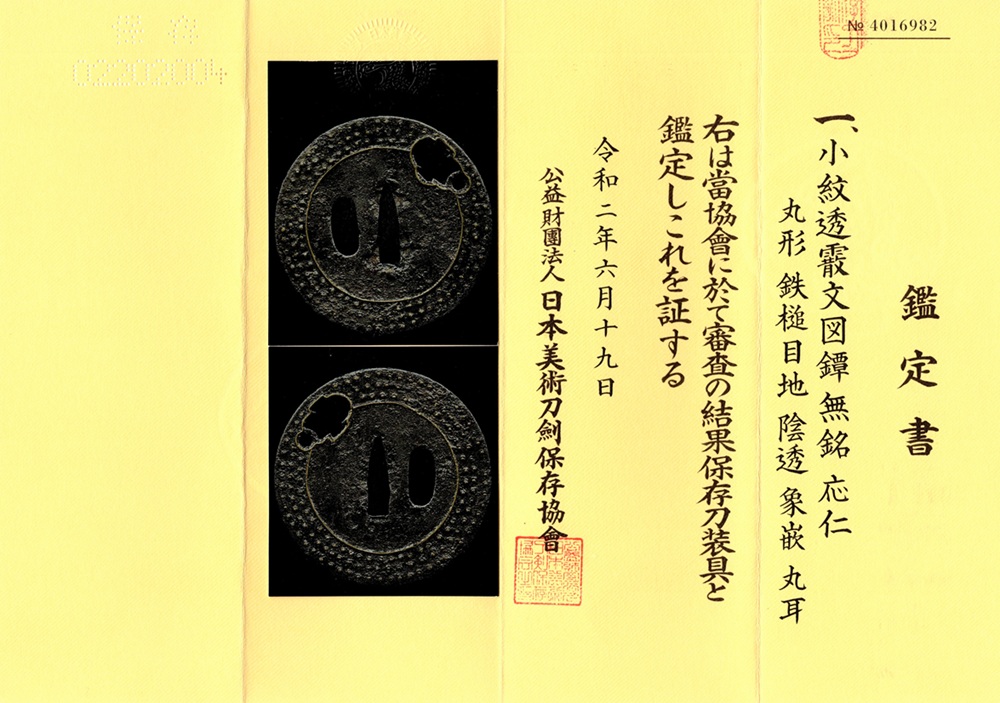 № 4016982
鑑定書
一、小紋透霰文図鐔 無銘 応仁
丸形 鉄槌目地 陰透 象嵌 丸耳
右は當協會に於て審査の結果保存刀装具と
鑑定しこれを証する
令和二年六月十九日
公益財團法人 日本美術刀劍保存協會
保存
0220204